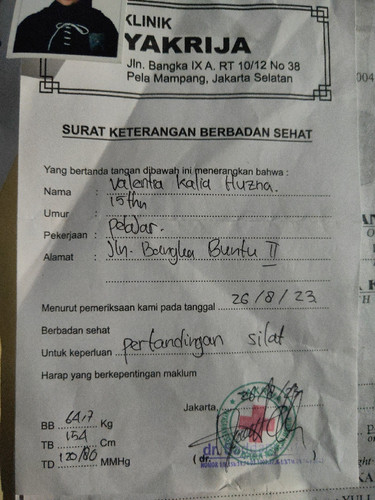 KLINIK
YAKRIJA
Jln. Bangka IX A. RT 10/12 No 38
Pela Mampang, Jakarta Selatan
SURAT KETERANGAN BERBADAN SEHAT
Yang bertanda tangan dibawah ini menerangkan bahwa :
Nama : Valentra Kalia Huzna.
Umur : 15thn
Pekerjaan : Pelajar.
Alamat : Jln. Bangka Buntu II
Menurut pemeriksaan kami pada tanggal 26/8/23
Berbadan sehat
Untuk keperluan pertandingan silat
Harap yang berkepentingan maklum
Jakarta,
BB 64,7 Kg
TB 154 Cm
TD 120/80 MMHg
( dr.